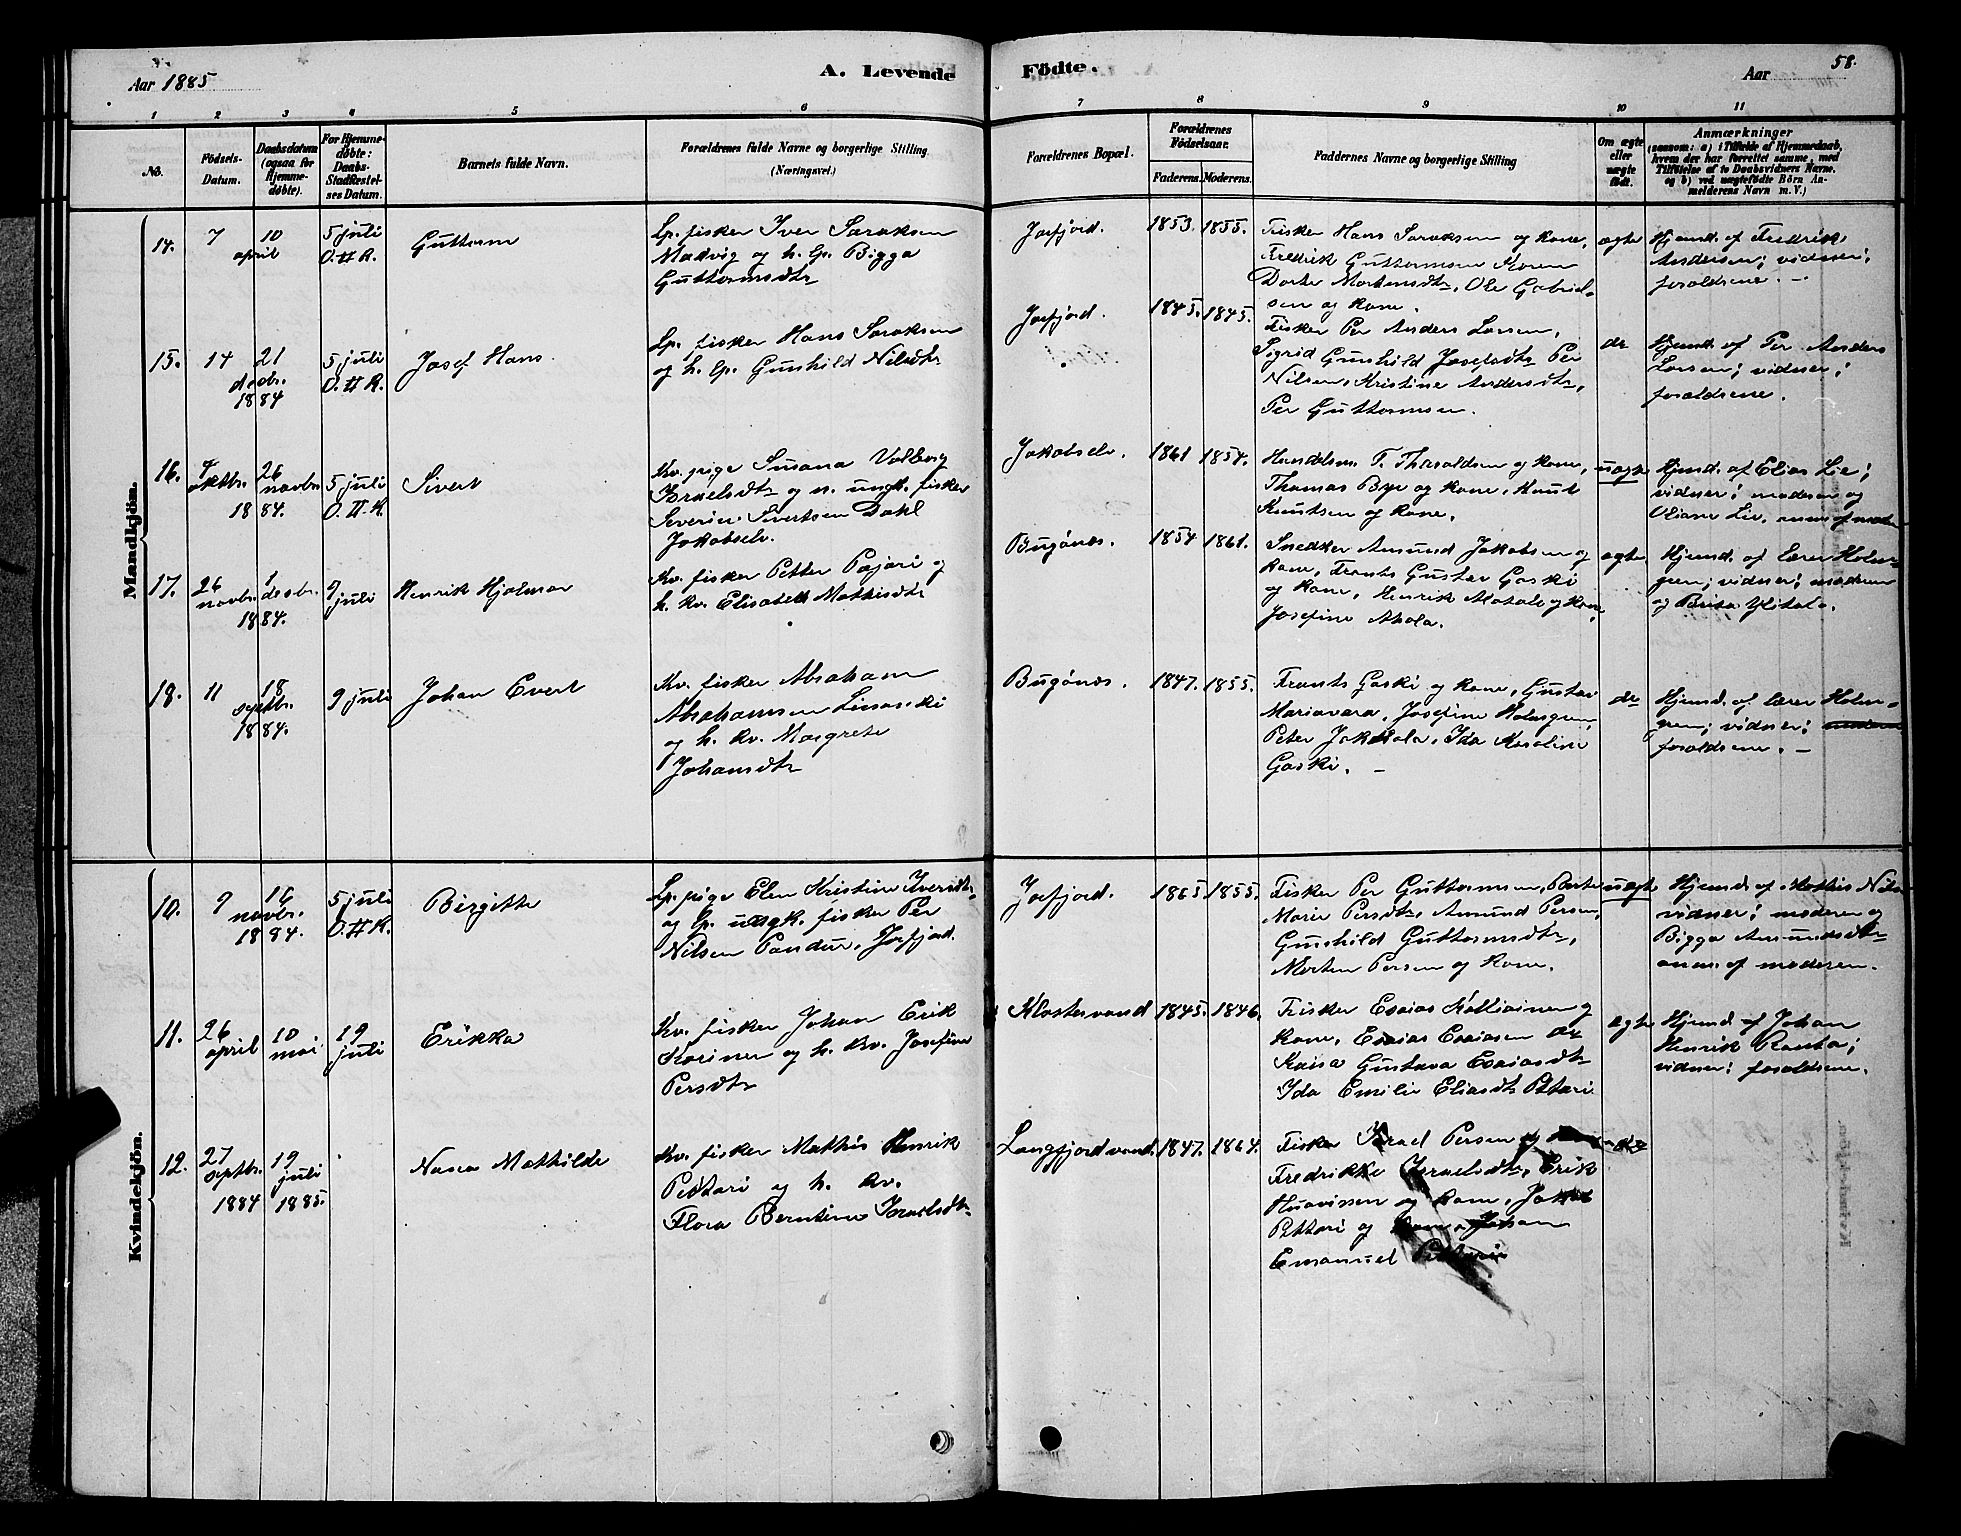 Aar 1885
A. Levende
Födte.
Aar
58.
1 2 3 4 5 6 7 8 9 10 11
No.
Födsels-
Datum.
Daabsdatum
(ogsaa for
Hjemme-
døbte).
For Hjemme-
døbte:
Daabs-
Stadfæstel-
ses Datum.
Barnets fulde Navn.
Forældrenes fulde Navne og borgerlige Stilling
(Næringsvei.)
Forældrenes Bopæl.
Forældrenes
Fødselsaar.
Faderens. Moderens.
Faddernes Navne og borgerlige Stilling
Om ægte
eller
uægte
født.
Anmærkninger
(saasom: a) i Tilfælde af Hjemmedaab,
hvem der har forrettet samme, med
Tilføielse af to Daabsvidners Navne.
og b) ved uægtefødte Børn An-
melderens Navn m. V.)
Mandkjön.
14.
7
april
10
5 juli
Guttorm
Lp. fisker Iver Saraksen
Madvig og h. lp. Bigga
Guttormsdtr
Jarfjord.
1853. 1855.
Fisker Hans Saraksen og kone,
Fredrik Guttormsen Karen
Dorte Mortensdtr, Ole Gabriel-
sen og kone.
ægte
Hjemd. af Fredrik
Andersen; vidner:
forældrene. —
15.
14
desbr.
1884
21
5 juli
Josef Hans
Lp. fisker Hans Saraksen
og h. lp. Gunhild Nilsdtr
Jarfjord.
1845. 1845.
Fisker Per Anders Larsen,
Sigrid Gunhild Josefsdtr Per
Nilsen, Kristine Andersdtr,
Per Guttormsen.
do
Hjemd. af Per Anders
Larsen; vidner:
forældrene.
16.
oktbr.
1884.
26
novbr.
5 juli
Sivert
Kv. pige Susana Valborg
Israelsdtr og n. ungk. fisker
Severin Sivertsen Dahl
Jakobselv.
Jakobselv.
1861 1854.
Handelsm. T. Tharaldsen og kone,
Thomas Bye og kone, Knut
Knutsen og kone.
uægte
Hjemd. af Elias Lie;
vidner: moderen og
Oliane Lie.
17.
26
novbr.
1884.
1
desbr.
9
juli
Henrik Hjalmar
Kv. fisker Petter Pajari og
h. kv. Elisabeth Mathisdtr
Bugönæs.
1854 1861.
Snedker Amund Jakobsen og
kone, Frants Gustav Gaski
og kone, Henrik Matala og kone,
Josefine Ahola.
ægte
Hjemd. af lærer Holm-
gren; vidner: moderen
og Brita Ylitalo.
18.
11
septbr.
1884.
18
9 juli
Johan Evert
Kv. fisker Abraham
Abrahamsen
og h. kv. Margrete
Johansdtr
Bugönæs.
1847. 1855.
Frants Gaski og kone, Gustav
Mariavara, Josefine Holmgren,
Peter Jakkola, Ida Karoline
Gaski. —
do
Hjemd. af lærer Holm-
gren; vidner:
forældrene. —
Kvindekjön.
10.
9
novbr.
1884.
16
5 juli
Birgitte
Lp. pige Elen Kristine Iversdtr
og lp. ungk. fisker Per
Nilsen Pandur, Jarfjord.
Jarfjord.
1865 1855.
Fisker Per Guttormsen, Berte
Marie Persdtr, Amund Persen,
Gunhild Guttormsdtr,
Morten Persen og kone.
uægte
Hjemd. af Mathis Nils-
vidner: moderen og
Bigga Amundsdtr
anm. af moderen.
11.
26
april
10
mai
19
juli
Erikka
Kv. fisker Johan Erik
Karinen og h. kv. Josefine
Persdtr
Klostervand
1845. 1846.
Fisker Esaias Kalliainen og
kone, Esaias Esaiasen
Kaisa Gustava Esaiasdtr
Ida Emilie Eliasdtr Pettari
ægte
Hjemd. af Johan
Henrik Ranta;
vidner: forældrene.
12.
27
septbr.
1884
19
juli
1885.
Nasea Mathilde
Kv. fisker Mathis Henrik
Pettari og h. kv.
Flora Berntine Israelsdtr
Langfjordvand.
1847. 1864.
Fisker Israel Persen og
Fredrikke Israelsdtr, Erik
og kone, Jakob
Pettari og kone, Johan
Emanuel Pettari
do